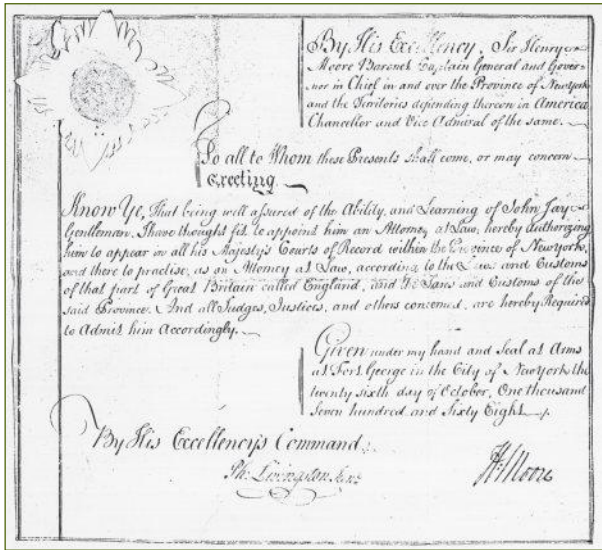 By His Excellency, Sir Henry
Moore Baronet Captain General and Gover-
nor in Chief in and over the Province of New York
and the Territories depending thereon in America
Chancellor and Vice Admiral of the same.
To all to Whom these Presents shall come, or may concern
Greeting
Know Ye, That being well assured of the Ability, and Learning of John Jay
Gentleman, I have thought fit to appoint him an Attorney at Law, hereby authorizing
him to appear in all his Majesty's Courts of Record within the Province of New York,
and there to practise, as an Attorney at Law, according to the Laws and Customs
of that part of Great Britain called England, and the Laws and Customs of the
said Province. And all Judges, Justices, and others concerned, are hereby Required
to Admit him Accordingly.
Given under my hand and Seal at Arms
at Fort George in the City of New York the
twenty sixth day of October, One thousand
Seven hundred and Sixty Eight
By His Excellency's Command
Ph: Livingston
H: Moore